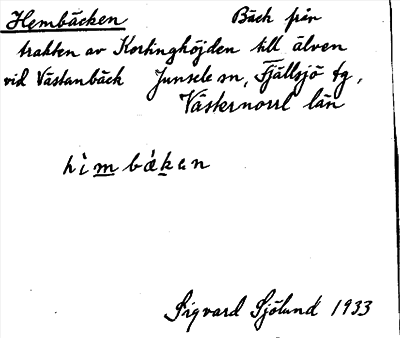 Hembäcken Bäck från
trakten av Kortinghöjden till älven
vid Västanbäck Junsele sn, Fjällsjö tg,
Västernorrl län
hi̇m båkɛn
Sigvard Sjölund 1933